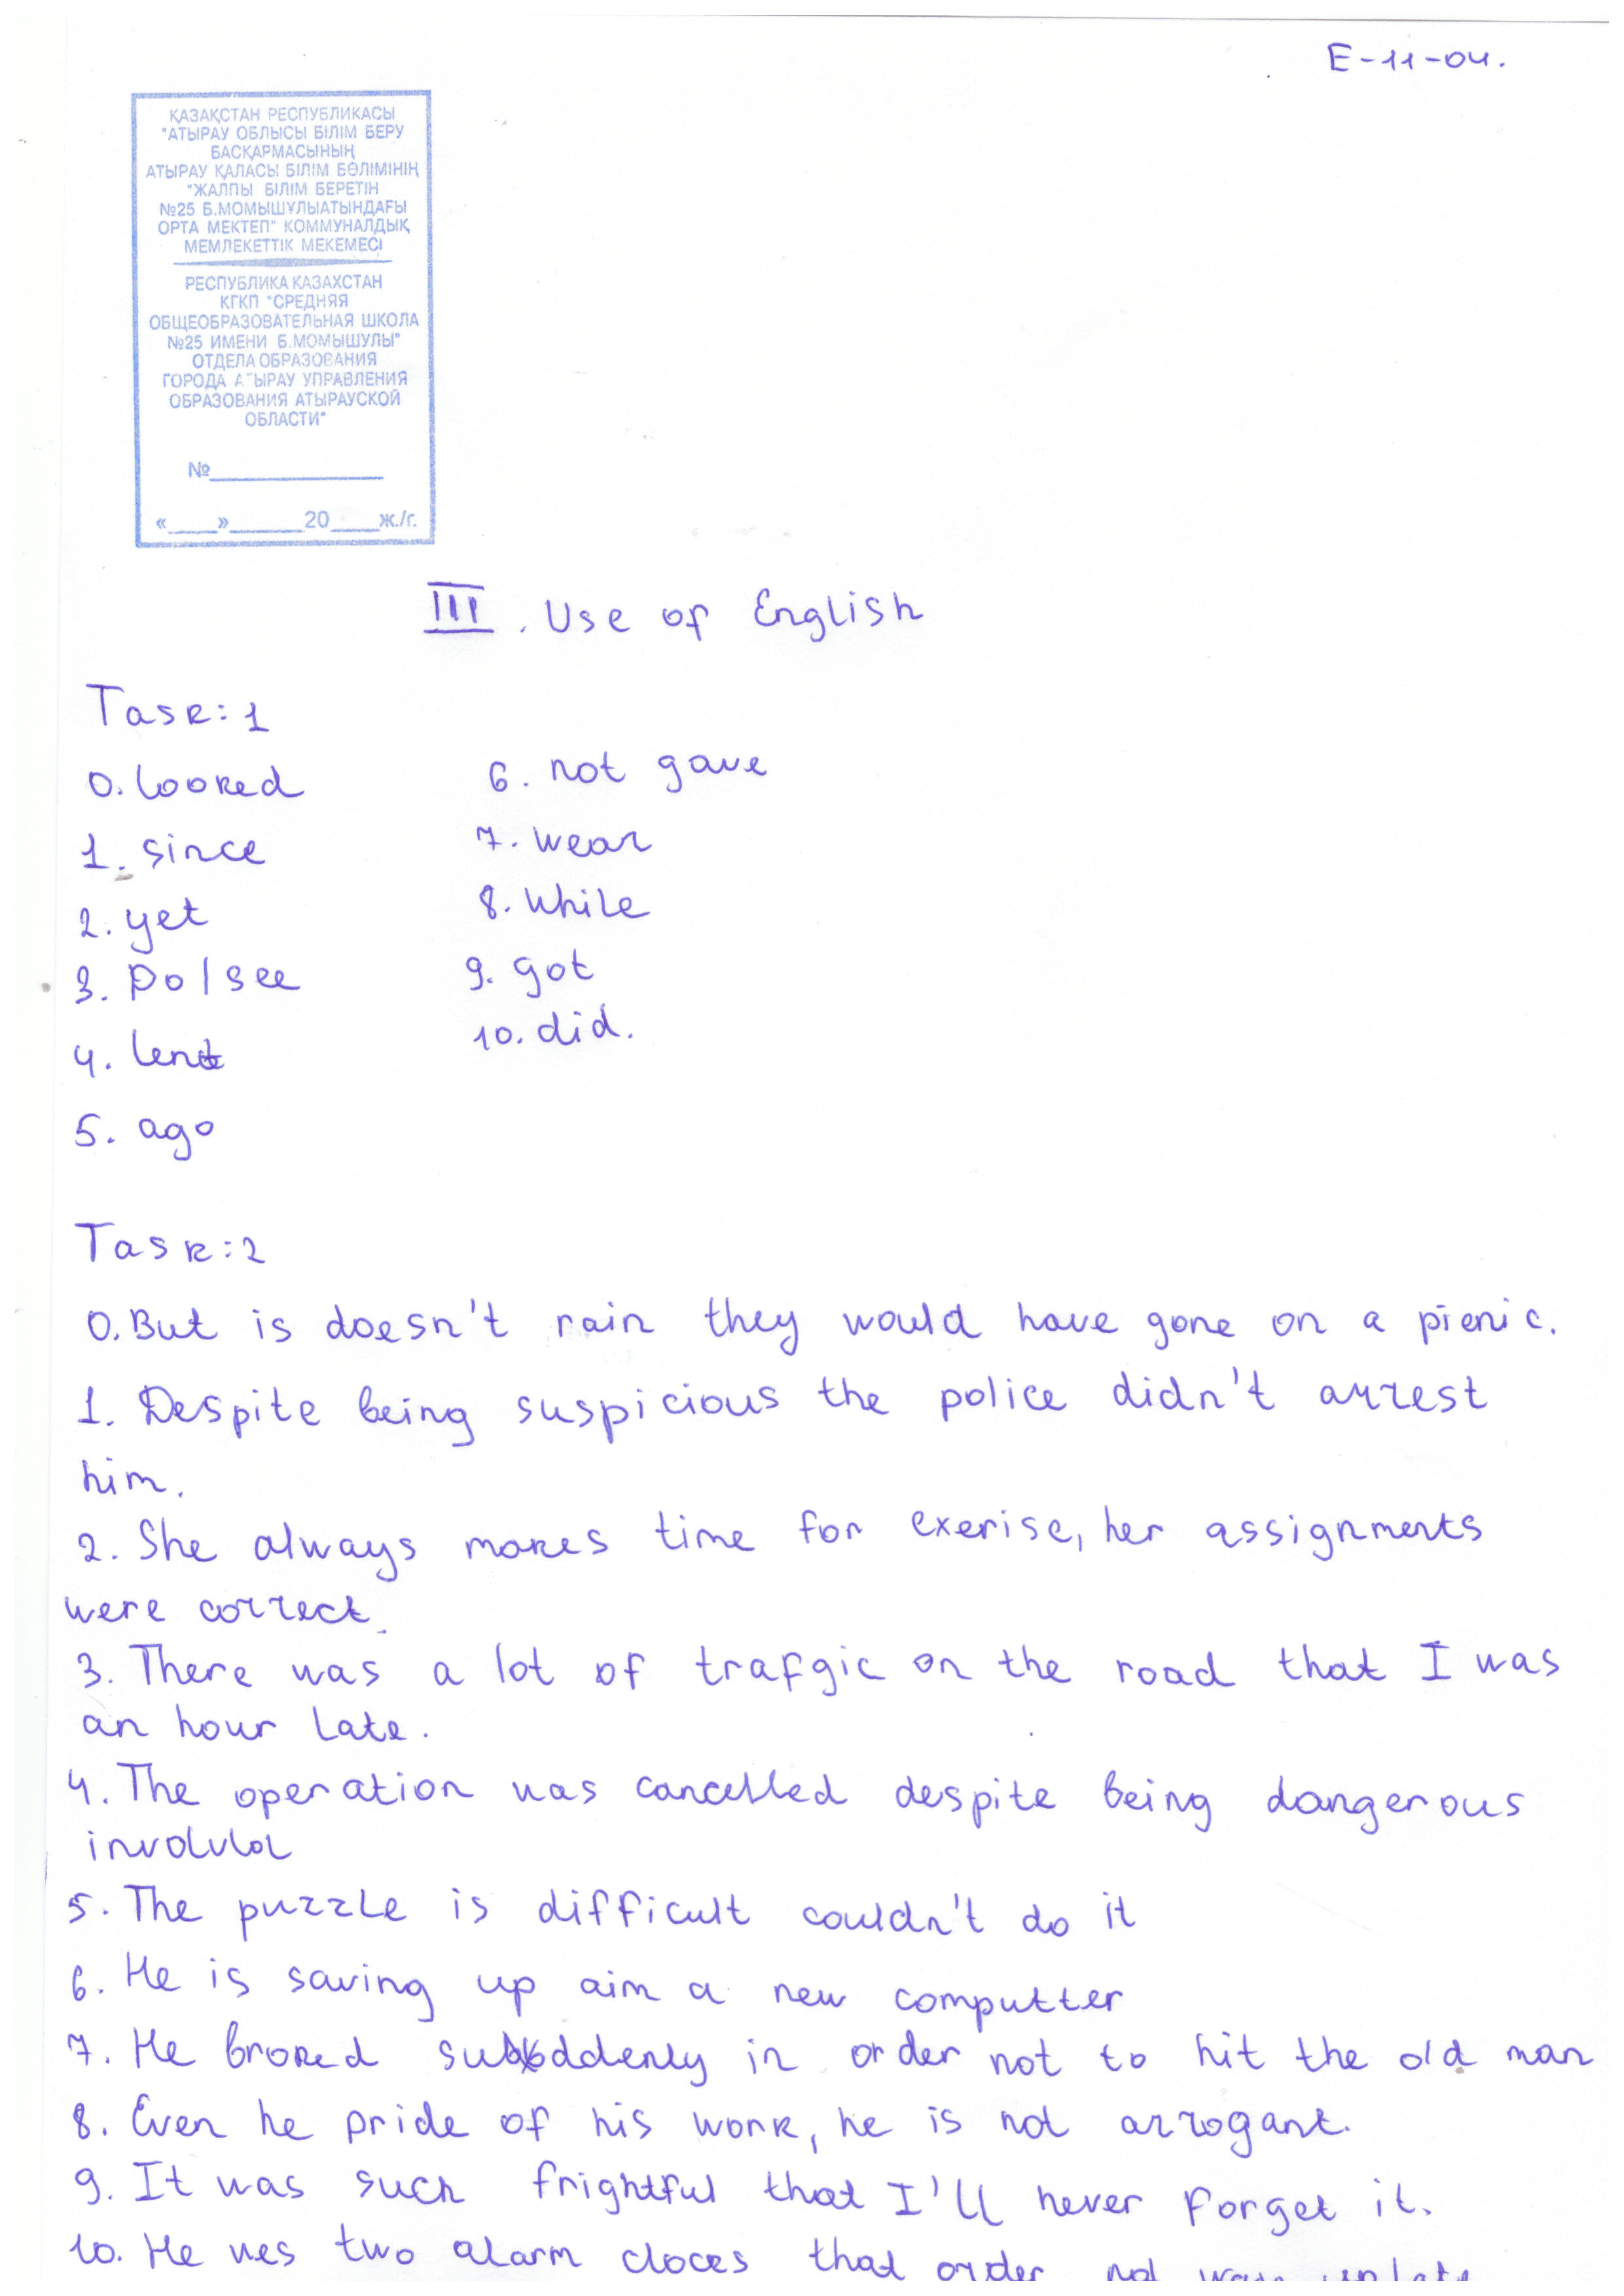 E-11-04.
ҚАЗАҚСТАН РЕСПУБЛИКАСЫ
"АТЫРАУ ОБЛЫСЫ БІЛІМ БЕРУ
БАСҚАРМАСЫНЫҢ
АТЫРАУ ҚАЛАСЫ БІЛІМ БӨЛІМІНІҢ
"ЖАЛПЫ БІЛІМ БЕРЕТІН
№25 Б.МОМЫШҰЛЫАТЫНДАҒЫ
ОРТА МЕКТЕП" КОММУНАЛДЫҚ
МЕМЛЕКЕТТІК МЕКЕМЕСІ
РЕСПУБЛИКА КАЗАХСТАН
КГКП "СРЕДНЯЯ
ОБЩЕОБРАЗОВАТЕЛЬНАЯ ШКОЛА
№25 ИМЕНИ Б.МОМЫШУЛЫ"
ОТДЕЛА ОБРАЗОВАНИЯ
ГОРОДА АТЫРАУ УПРАВЛЕНИЯ
ОБРАЗОВАНИЯ АТЫРАУСКОЙ
ОБЛАСТИ"
№
«____»______20____ж./г.
III. Use of English
Task: 1
0. looked
1. since
2. yet
3. Do/see
4. lent
5. ago
6. not gave
7. wear
8. while
9. got
10. did.
Task: 2
0. But is doesn't rain they would have gone on a picnic.
1. Despite being suspicious the police didn't arrest
him.
2. She always makes time for exerise, her assignments
were correct.
3. There was a lot of trafgic on the road that I was
an hour late.
4. The operation was cancelled despite being dangerous
5. The puzzle is difficult couldn't do it
6. He is saving up aim a new computter
7. He broked suddenly in order not to hit the old man
8. Even he pride of his work, he is not arrogant.
9. It was such frightful that I'll never forget it.
10. He two alarm cloces that order